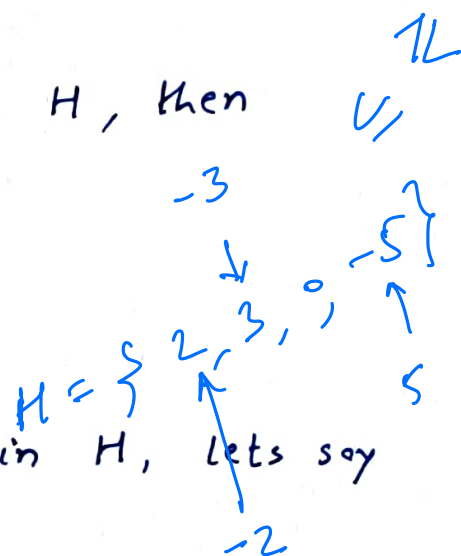 ℤ
H, then
U/
-3
H = { 2, 3, 0, -5 }
5
in H, lets say
-2